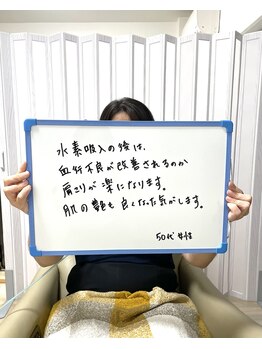 水素吸入の後は、
血行不良が改善されるのか
肩こりが楽になります。
肌の艶も良くなった気がします。
50代 女性